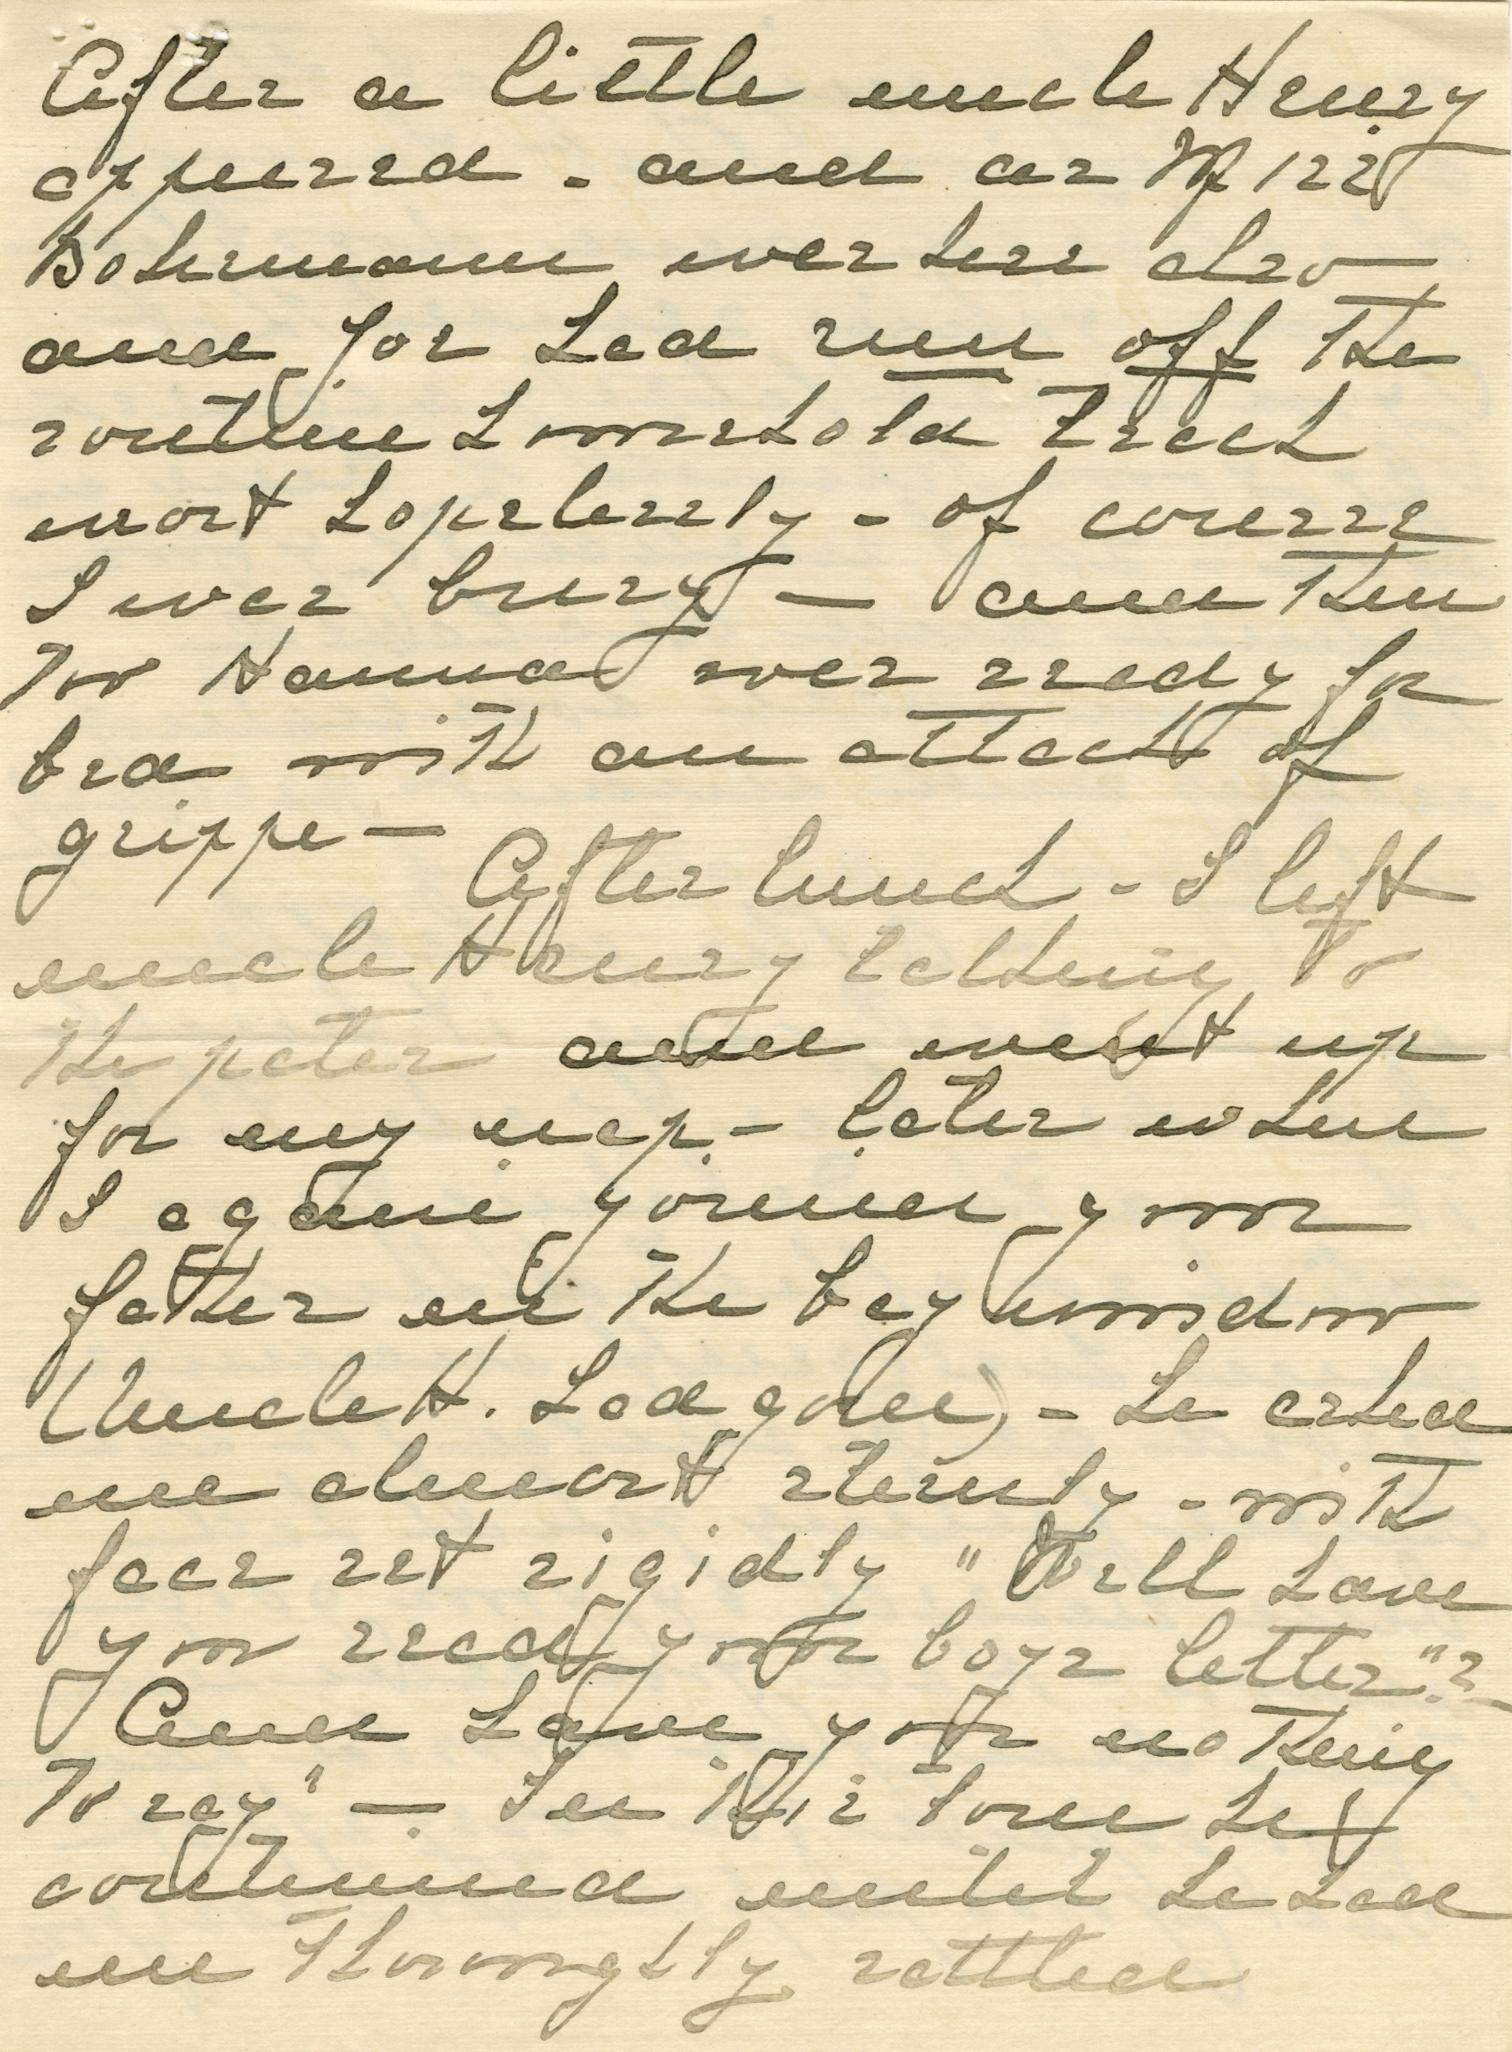 After a little uncle Henry
appeared - and as Miss
Bohrmann was here also
and for had run off the
routine household track
most hopelessly - of course
I was busy — and then
too Hanna was ready for
bed with an attack of
grippe —
After lunch - I left
uncle Henry talking to
the pater and went up
for my nap - later when
I again joined your
father in the bay window
(Uncle H. had gone) - he asked
me almost sternly - with
face set rigidly "Well have
you read your boys letter"?
"And have you nothing
to say" — In this tone he
continued until he had
me thoroughly rattled